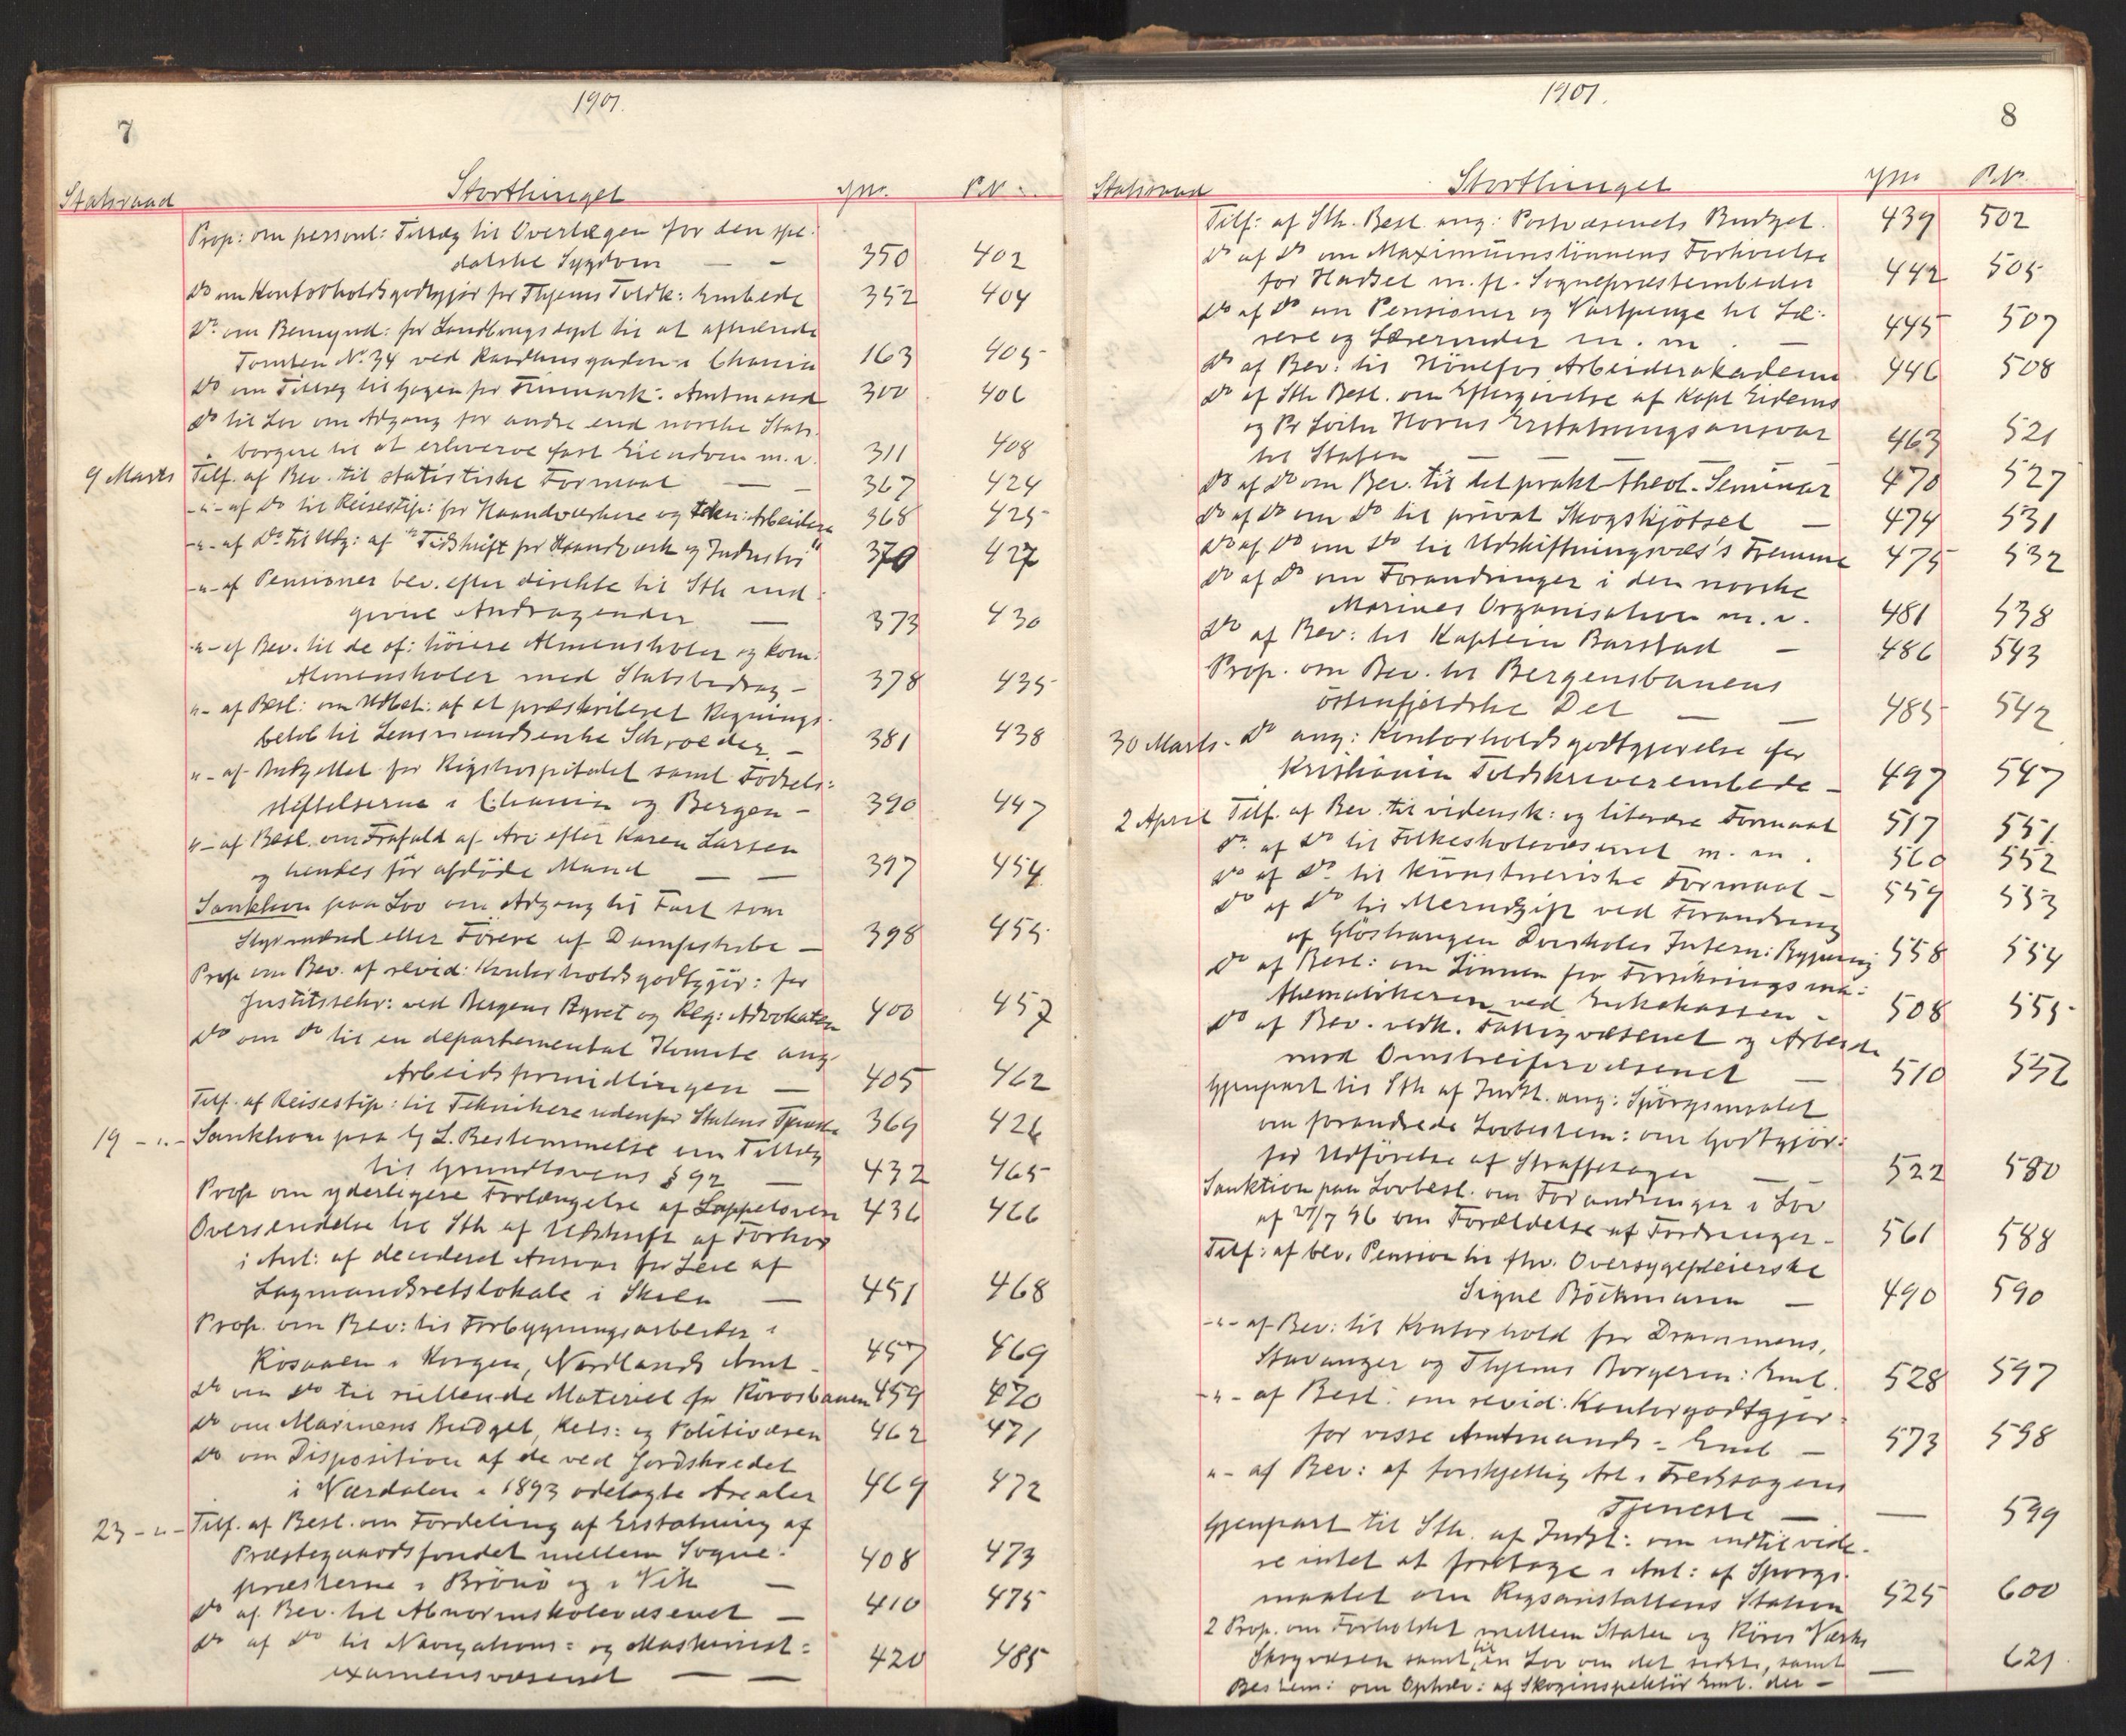 1901.
7
Statsraad Storthinget Jnr. P.N.
Prop: om personl: Tillæg til Overlægen for den spe-
dalske Sygdom — - 350 402
Do om Kontorholdsgodtgjør for Thjems Toldk: Embede 352 404
Do om Bemynd: for Landbrugsdept til at afhænde
Tomten No. 34 ved Raadhusgaden i Chania 163 405
Do om Tillæg til Gagen for Finmark: Amtmand 300 406
Do til Lov om Adgang for andre end norske Stats-
borgere til at erhverve fast Eiendom m.v. 311 408
9 Marts Tilf. af Bev. til statistiske Formaal — - 367 424
-"- af Do til Reisestip: for Haandværkere og tekn: Arbeidere 368 425
-"- af Do til Udg: af "Tidskrift for Haandværk og Industri" 370 427
-"- af Pensioner bev. efter direkte til Sth ind-
givne Andragender — 373 430
-"- af Bev. til de of: höiere Almenskoler og kom:
Almenskoler med Statsbidrag - 378 435
"- af Besl: om Udbet: af et præskriberet Regnings-
beløb til Lensmandsenke Schroeder - 381 438
"- af Budgettet for Rigshospitalet samt Födsels-
stiftelserne i Chania og Bergen - 390 447
"- af Besl. om Frafald af Arv efter Karen Larsen
og hendes för afdöde Mand — — 397 454
Sanktion paa Lov om Adgang til Fart som
Styrmænd eller Förere af Dampskibe — 398 455
Prop om Bev. af revid: Kontorholdsgodtgjör: for
Justitssekr: ved Bergens Byret og Reg: Advokaten 400 457
Do om Do til en departemental Komite ang.
Arbeidsformidlingen — 405 462
Tilf. af Reisestip: til Teknikere udenfor Statens Tjeneste 369 426
19 -"- Sanktion paa Lj L. Bestemmelse om Tillæg
til Grundlovens § 92 — 432 465
Prop om yderligere Forlængelse af Lappeloven 436 466
Oversendelse til Sth af Udskrift af Forhör
i Anl: af decideret Ansvar for Leie af
Lagmandsretslokale i Skien — 451 468
Prop. om Bev: til Forbygningsarbeider i
Rösaaen i Korgen, Nordlands Amt - 457 469
Do om Do til rullende Materiel for Rörosbanen 459 470
Do om Marinens Budget, Rets: og Politivæsen 462 471
Do om Disposition af de ved Jordskredet
i Værdalen i 1893 ödelagte Arealer 469 472
23 -"- Tilf. af Besl. om Fordeling af Erstatning af
Præstegaardsfondet mellem Sogne-
præsterne i Brönö og i Vik — 408 473
Do af Bev. til Abnormskolevæsenet — 410 475
Do af Do til Navigations- og Maskinist-
examensvæsenet — — 420 485
1901.
8
Statsraad Storthinget Jnr P.N.
Tilf: af Sth. Besl. ang: Postvæsenets Budget. 439 502
Do af Do om Maximumslönnens Forhöielse
for Hadsel m.fl. Sognepræstembeder 442 505
Do af Do om Pensioner og Vartpenge til Læ-
rere og Lærerinder m.m. — 445 507
Do af Bev: til Hönefos Arbeiderakademi 446 508
Do af Sth Besl. om Eftergivelse af Kapt Eidems
og Pr Löitn Horns Erstatningsansvar
til Staten — — 463 521
Do af Do om Bev. til det prakt-theol. Seminar 470 527
Do af Do om Do til privat Skogskjötsel — 474 531
Do af Do om Do til Udskiftningsvæs's Fremme 475 532
Do af Do om Forandringer i den norske
Marines Organisation m.v. 481 538
Do af Bev: til Kaptein Barstad — 486 543
Prop. om Bev. til Bergensbanens
östenfjeldske Del — — 485 542
30 Marts - Do ang: Kontorholdsgodtgjørelse for
Kristiania Toldskriverembede - 497 547
2 April Tilf. af Bev. til vidensk: og literære Formaal 517 551
Do af Do til Folkeskolevæsenet m.m. 560 552
Do af Do til kunstneriske Formaal - 559 553
Do af Do til Merudgift ved Forandring
af Glöshaugen Dövskoles Intern: Bygning 558 554
Do af Besl: om Lönnen for Forsikringsma-
thematikeren ved Enkekassen - 508 555
Do af Bev. vedk. Fattigvæsenet og Arbeide
mod Omstreifervæsenet — 510 557
Gjenpart til Sth af Indst. ang: Spörgsmaalet
om forandrede Lovbestem: om Godtgjör:
for Udförelse af Straffesager — 522 580
Sanktion paa Lovbesl. om Forandringer i Lov
af 27/7 96 om Forældelse af Fordringer - 561 588
Tilf: af bev. Pension til fhv. Oversygepleierske
Signe Böckmann — 490 590
-"- af Bev: til Kontorhold for Drammens,
Stavanger og Thjems Borgerm: Emb. 528 597
-"- af Besl: om revid: Kontorgodtgjör-
for visse Amtmands- Emb — 573 598
"- af Bev: af forskjellig Art i Fredssagens
Tjeneste — — 599
Gjenpart til Sth. af Indst: om indtil vide-
re intet at foretage i Anl: af Spörgs-
maalet om Rigsanstaltens Station 525 600
2 Prop. om Forholdet mellem Staten og Röros Værks
Skogvæsen samt til en Lov om det sidste, samt — 621
Bestem: om Ophæv: af Skoginspektör Emb. der —